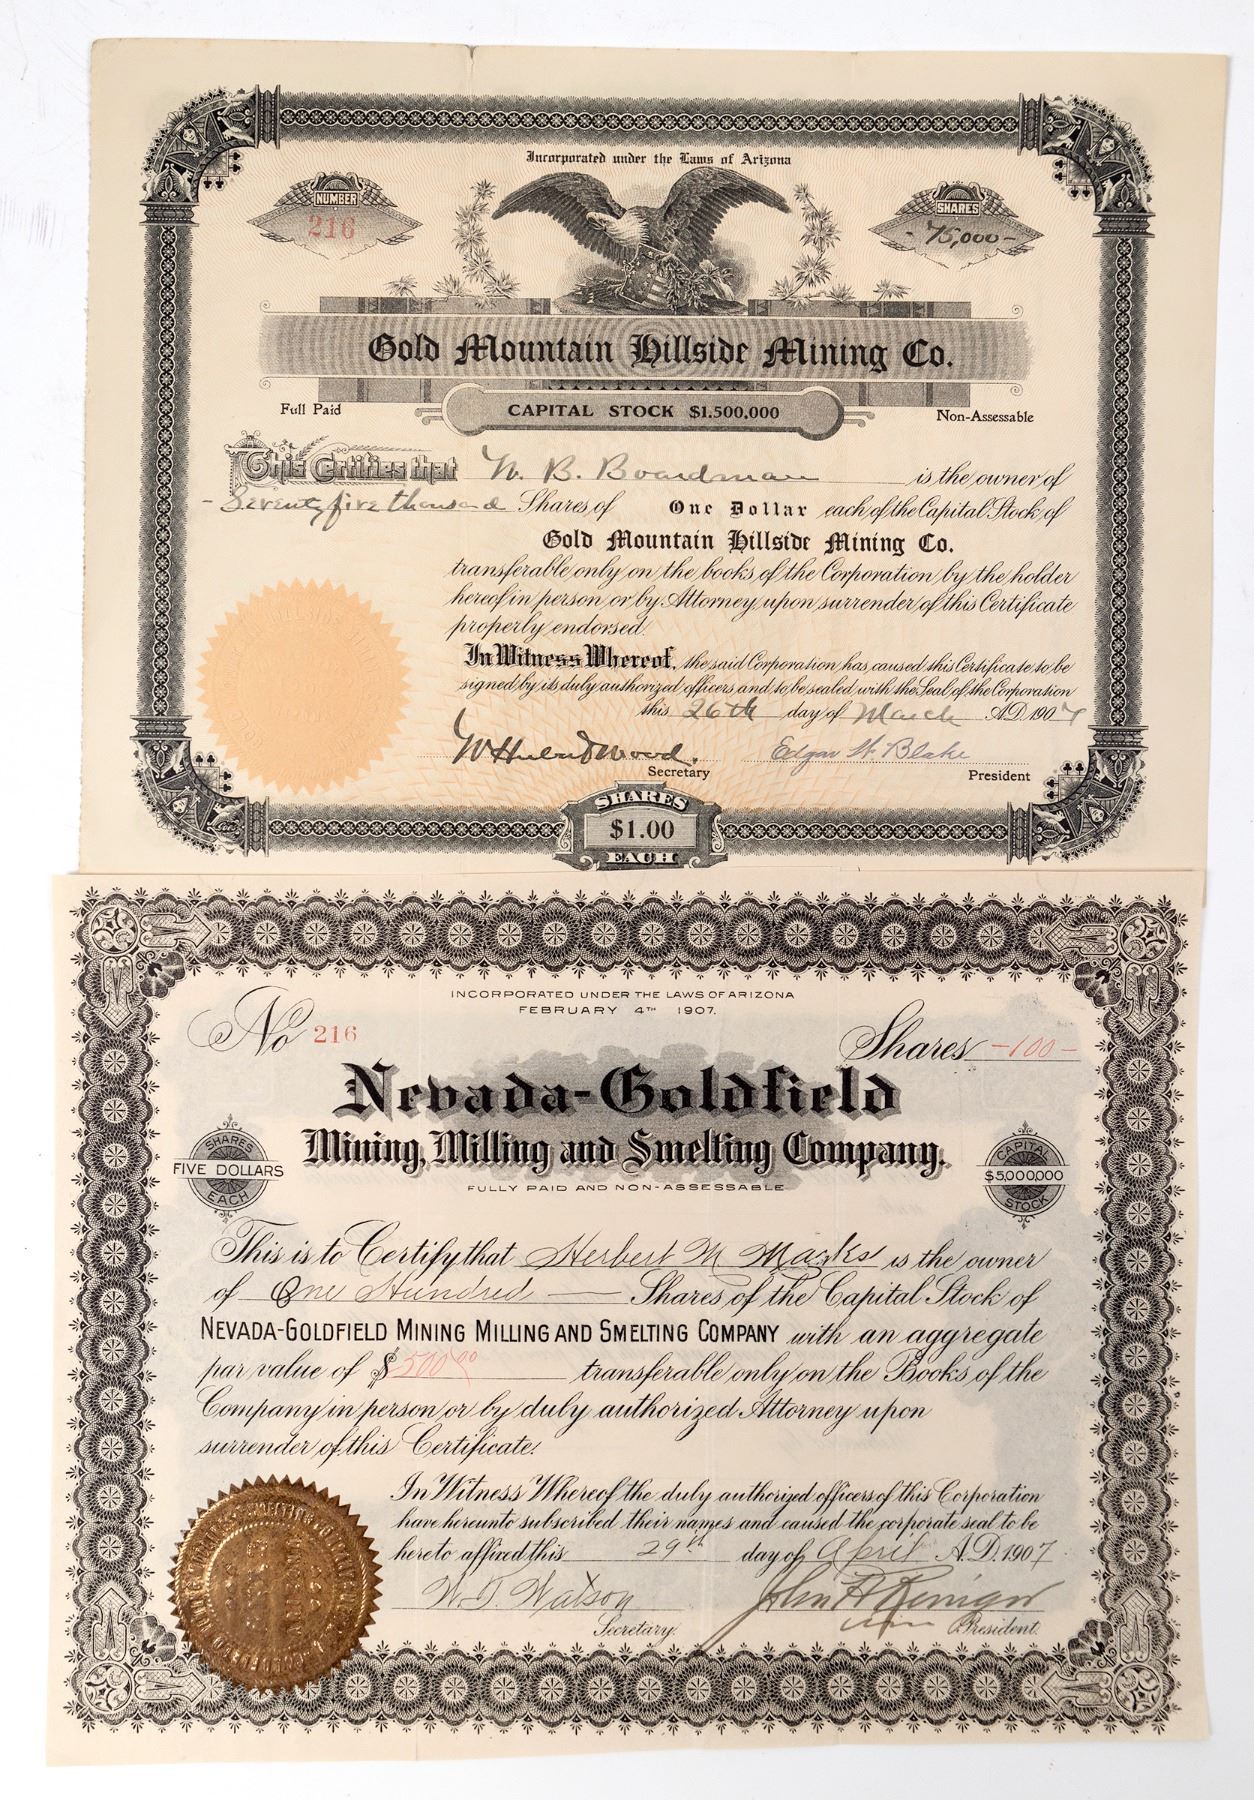 Incorporated under the Laws of Arizona
NUMBER
216
SHARES
- 75,000 -
Gold Mountain Hillside Mining Co.
Full Paid
CAPITAL STOCK $1.500,000
Non-Assessable
This Certifies that W. B. Boardman is the owner of
- Seventy five thousand Shares of One Dollar each of the Capital Stock of
Gold Mountain Hillside Mining Co.
transferable only on the books of the Corporation by the holder
hereof in person or by Attorney upon surrender of this Certificate
properly endorsed.
In Witness Whereof, the said Corporation has caused this Certificate to be
signed by its duly authorized officers and to be sealed with the Seal of the Corporation
this 26th day of March A.D. 1907
W Hulbert Wood. Edgar H. Blake
Secretary
President
SHARES
$1.00
EACH
INCORPORATED UNDER THE LAWS OF ARIZONA
FEBRUARY 4TH 1907.
No 216
Shares -100-
Nevada-Goldfield
Mining, Milling and Smelting Company.
SHARES
FIVE DOLLARS
EACH
CAPITAL
$5,000,000
STOCK
FULLY PAID AND NON-ASSESSABLE
This is to Certify that Herbert M Marks is the owner
of One Hundred Shares of the Capital Stock of
NEVADA-GOLDFIELD MINING MILLING AND SMELTING COMPANY with an aggregate
par value of $500.00 transferable only on the Books of the
Company in person or by duly authorized Attorney upon
surrender of this Certificate.
In Witness Whereof the duly authorized officers of this Corporation
have hereunto subscribed their names and caused the corporate seal to be
hereto affixed this 29th day of April A.D. 1907.
W. T. Watson John
Secretary. President.